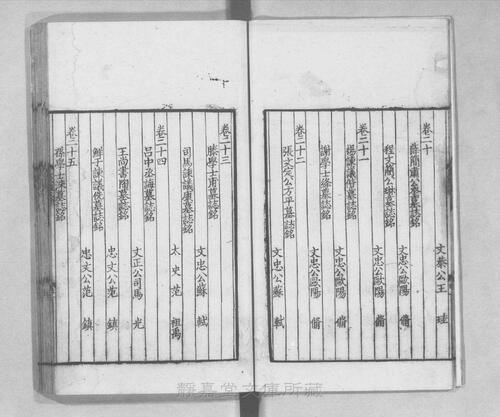 卷二十
薛簡肅公奎墓誌銘 文忠公歐陽 脩
程文簡公琳墓誌銘 文忠公歐陽 脩
卷二十一
楊諫議偕墓誌銘 文忠公歐陽 脩
謝學士絳墓誌銘 文忠公歐陽 脩
卷二十二
張文定公方平墓誌銘 文忠公蘇 軾
卷二十三
滕學士甫墓誌銘 文忠公蘇 軾
司馬諫議康墓誌銘 太史范 祖禹
卷二十四
呂中丞誨墓誌銘 文正公司馬 光
王尚書陶墓誌銘 忠文公范 鎮
鮮于諫議侁墓誌銘 忠文公范 鎮
卷二十五
孫學士洙墓誌銘
文恭公王 珪
靜嘉堂文庫所藏